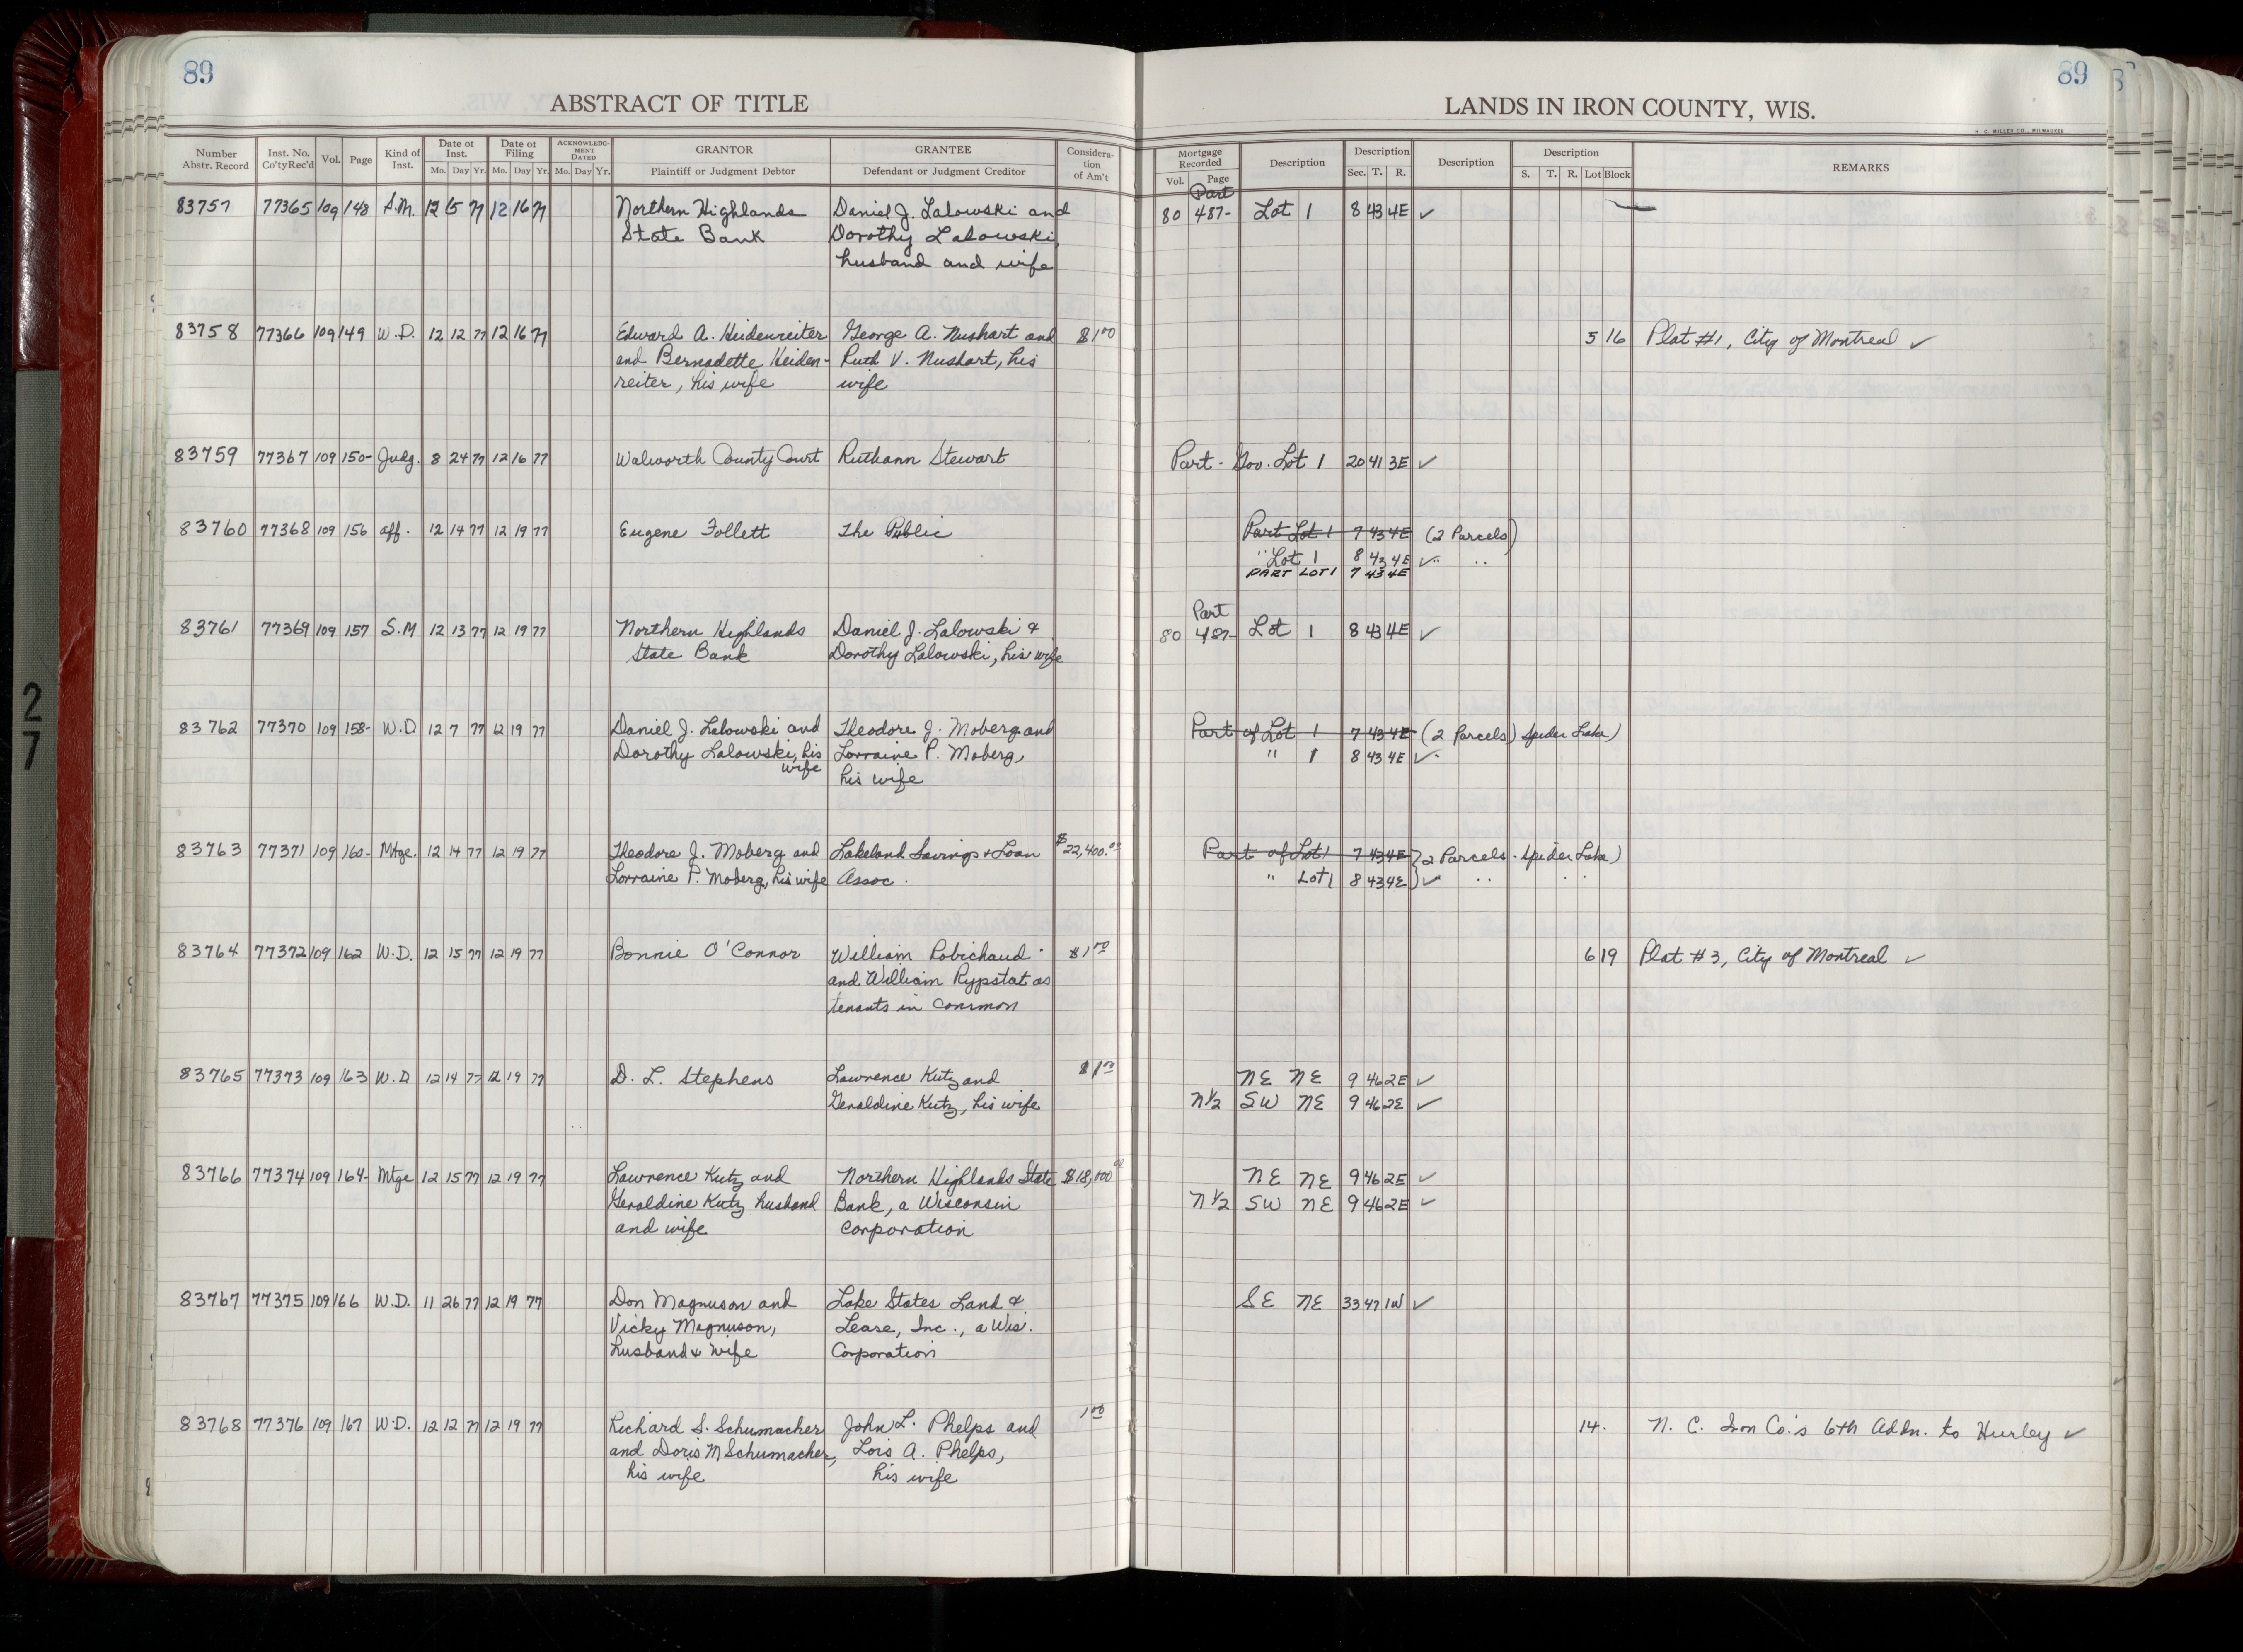 89
89
ABSTRACT OF TITLE
LANDS IN IRON COUNTY, WIS.
H. C. MILLER CO., MILWAUKEE
Number Abstr. Record | Inst. No. Co'tyRec'd | Vol. | Page | Kind of Inst. | Date of Inst. Mo. Day Yr. | Date of Filing Mo. Day Yr. | ACKNOWLEDGMENT DATED Mo. Day Yr. | GRANTOR Plaintiff or Judgment Debtor | GRANTEE Defendant or Judgment Creditor | Consideration of Am't | Mortgage Recorded Vol. Page | Description | Description Sec. T. R. | Description | Description S. T. R. Lot Block | REMARKS
Part
83757 77365 109 148 S.M. 12 15 77 12 16 77 Northern Highlands Daniel J. Lalowski and 80 487- Lot 1 8 43 4E ✓
State Bank Dorothy Lalowski,
husband and wife
83758 77366 109 149 W.D. 12 12 77 12 16 77 Edward A. Heidenreiter George A. Nushart and $1.00 5 16 Plat #1, City of Montreal ✓
and Bernadette Heiden- Ruth V. Nushart, his
reiter, his wife wife
83759 77367 109 150- Judg. 8 24 77 12 16 77 Walworth County Court Ruthann Stewart Part - Gov. Lot 1 20 41 3E ✓
83760 77368 109 156 aff. 12 14 77 12 19 77 Eugene Follett The Public Part Lot 1 7 43 4E (2 Parcels)
" Lot 1 8 43 4E ✓ " "
PART LOT 1 7 43 4E
Part
83761 77369 109 157 S.M 12 13 77 12 19 77 Northern Highlands Daniel J. Lalowski & 80 487- Lot 1 8 43 4E ✓
State Bank Dorothy Lalowski, his wife
83762 77370 109 158- W.D 12 7 77 12 19 77 Daniel J. Lalowski and Theodore J. Moberg and Part of Lot 1 7 43 4E (2 Parcels) Spider Lake)
Dorothy Lalowski, his Lorraine P. Moberg, " 1 8 43 4E ✓
wife his wife
83763 77371 109 160- Mtge. 12 14 77 12 19 77 Theodore J. Moberg and Lakeland Savings & Loan $22,400.00 Part of Lot 1 7 43 4E } 2 Parcels - Spider Lake)
Lorraine P. Moberg, his wife Assoc. " LOT 1 8 43 4E } ✓ " "
83764 77372 109 162 W.D. 12 15 77 12 19 77 Bonnie O'Connor William Robichaud $1.00 6 19 Plat #3, City of Montreal ✓
and William Rypstat as
tenants in common
83765 77373 109 163 W.D 12 14 77 12 19 77 D. L. Stephens Lawrence Kutz and $1.00 NE NE 9 46 2E ✓
Geraldine Kutz, his wife N1/2 SW NE 9 46 2E ✓
83766 77374 109 164- Mtge 12 15 77 12 19 77 Lawrence Kutz and Northern Highlands State $18,000.00 NE NE 9 46 2E ✓
Geraldine Kutz husband Bank, a Wisconsin N1/2 SW NE 9 46 2E ✓
and wife corporation
83767 77375 109 166 W.D. 11 26 77 12 19 77 Don Magnuson and Lake States Land & SE NE 33 47 1W ✓
Vicky Magnuson, Lease, Inc., a Wis.
husband & wife Corporation
83768 77376 109 167 W.D. 12 12 77 12 19 77 Richard S. Schumacher John L. Phelps and 1.00 14. N. C. Iron Co.'s 6th Addn. to Hurley ✓
and Doris M Schumacher, Lois A. Phelps,
his wife his wife
27